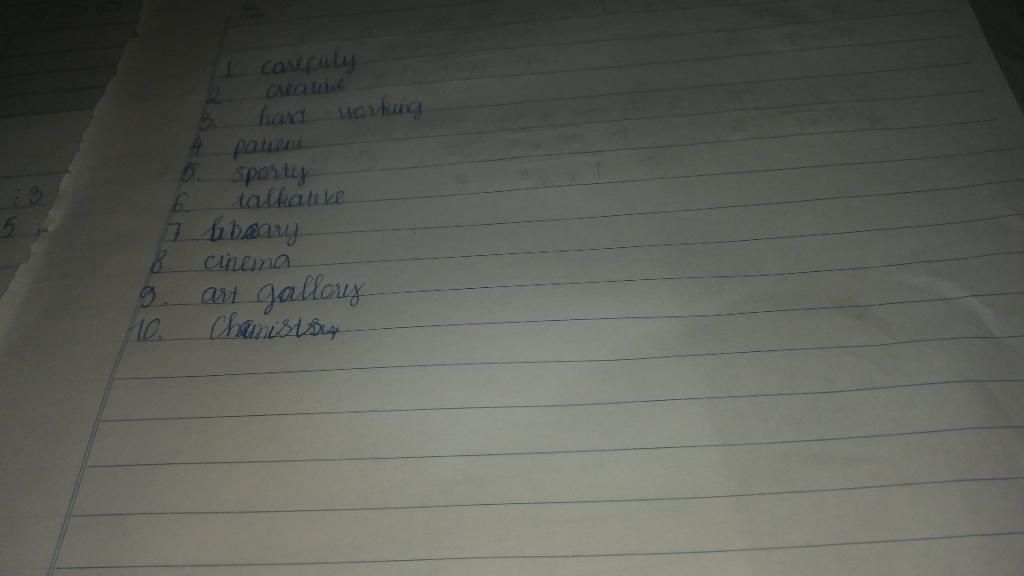 1. carefuly
2. creative
3. hard-working
4. patient
5. sporty
6. talkative
7 library
8. cinema
9. art gallory
10.
: 3
5